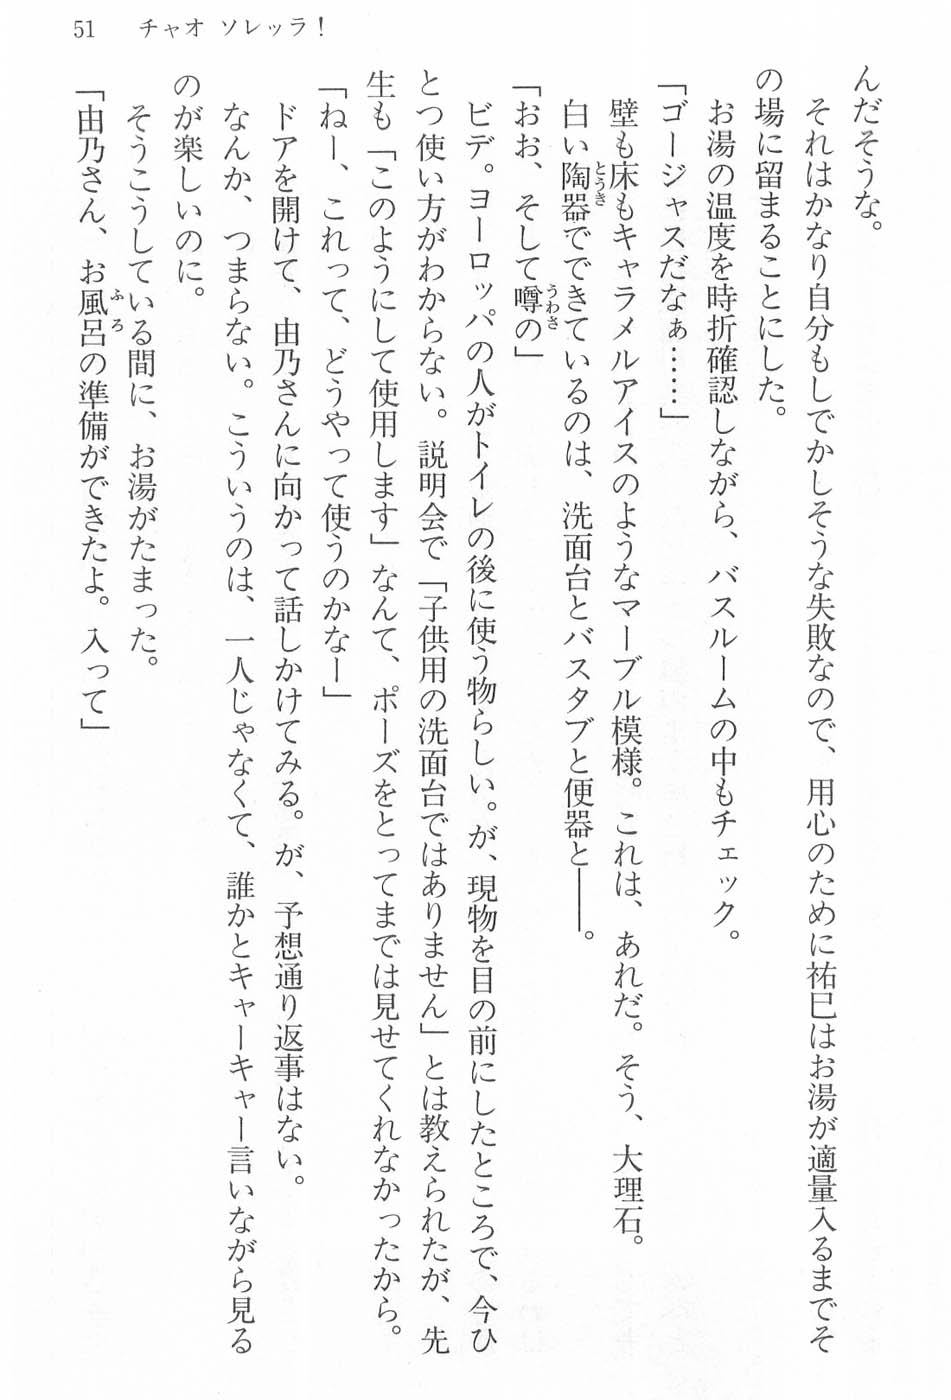 51　チャオ ソレッラ！
んだそうな。
　それはかなり自分もしでかしそうな失敗なので、用心のために祐巳はお湯が適量入るまでそ
の場に留まることにした。
　お湯の温度を時折確認しながら、バスルームの中もチェック。
「ゴージャスだなぁ……」
　壁も床もキャラメルアイスのようなマーブル模様。これは、あれだ。そう、大理石。
　白い陶器でできているのは、洗面台とバスタブと便器と――。
「おお、そして噂の」
　ビデ。ヨーロッパの人がトイレの後に使う物らしい。が、現物を目の前にしたところで、今ひ
とつ使い方がわからない。説明会で「子供用の洗面台ではありません」とは教えられたが、先
生も「このようにして使用します」なんて、ポーズをとってまでは見せてくれなかったから。
「ねー、これって、どうやって使うのかなー」
　ドアを開けて、由乃さんに向かって話しかけてみる。が、予想通り返事はない。
　なんか、つまらない。こういうのは、一人じゃなくて、誰かとキャーキャー言いながら見る
のが楽しいのに。
　そうこうしている間に、お湯がたまった。
「由乃さん、お風呂の準備ができたよ。入って」